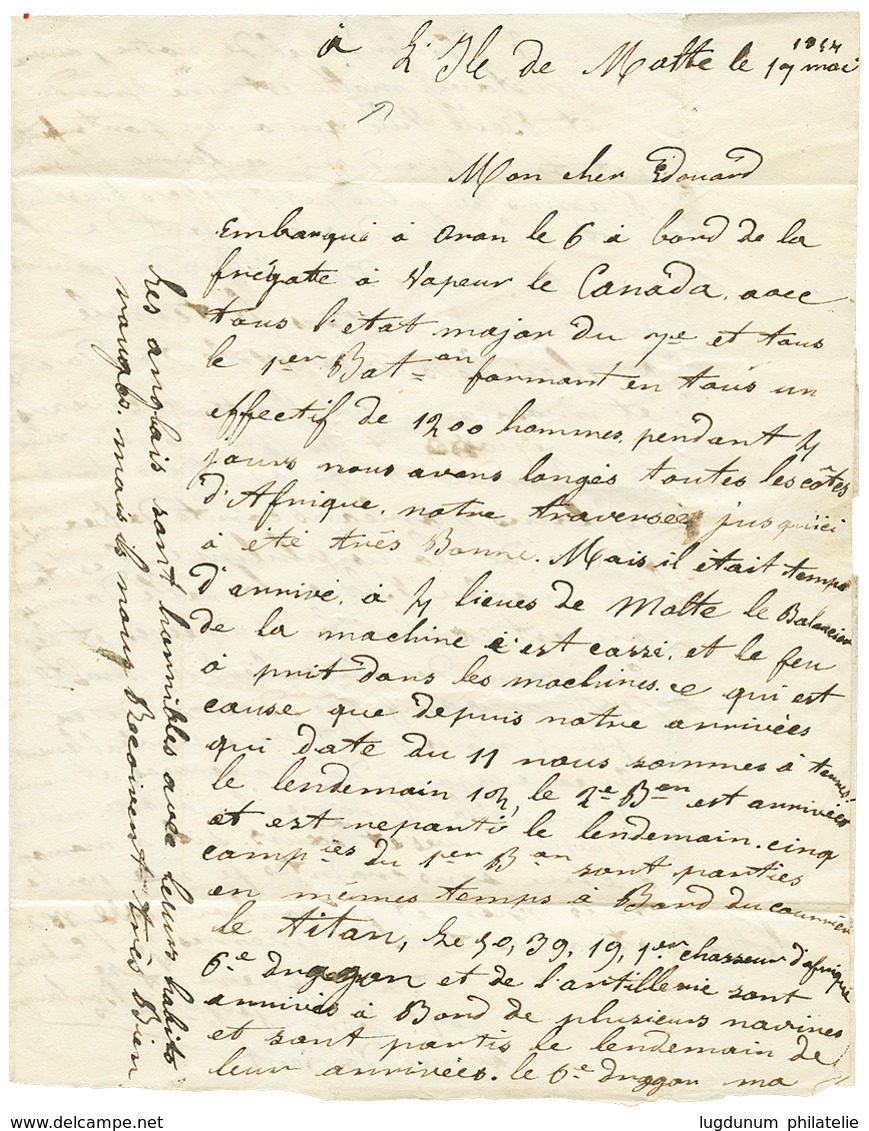 à L'Ile de Malte le 17 mai
1854
Mon cher Edouard
Embarqué à Oran le 6 à bord de la
frégatte à Vapeur le Canada, avec
tous l'état major du 7e et tous
le 1er Baton formant en tous un
effectif de 1200 hommes, pendant 4
jours nous avons longés toutes les côtes
d'Afrique, notre traversée jusqu'ici
à été très Bonne. Mais il était temps
d'arrivé, à 4 lieues de Malte le Balancier
de la machine c'est cassé, et le feu
à prit dans les machines. ce qui est
cause que depuis notre arrivées
qui date du 11 nous sommes à terres.
le lendemain 12, le 2e Bon est arrivées
et est repartis le lendemain. cinq
campies du 1er Bon sont parties
en mêmes temps à Bord du courrier
le titan, Le 50, 39, 19, 1er chasseur d'afrique
6e dragon et de l'artillerie sont
arrivés à Bord de plusieurs navires
et sont partis le lendemain de
leur arrivées. le 6e dragon ma
Les anglais sont horribles avec leurs habits
rouges. mais ils nous Recoivent très Bien
lugdunum philatelie